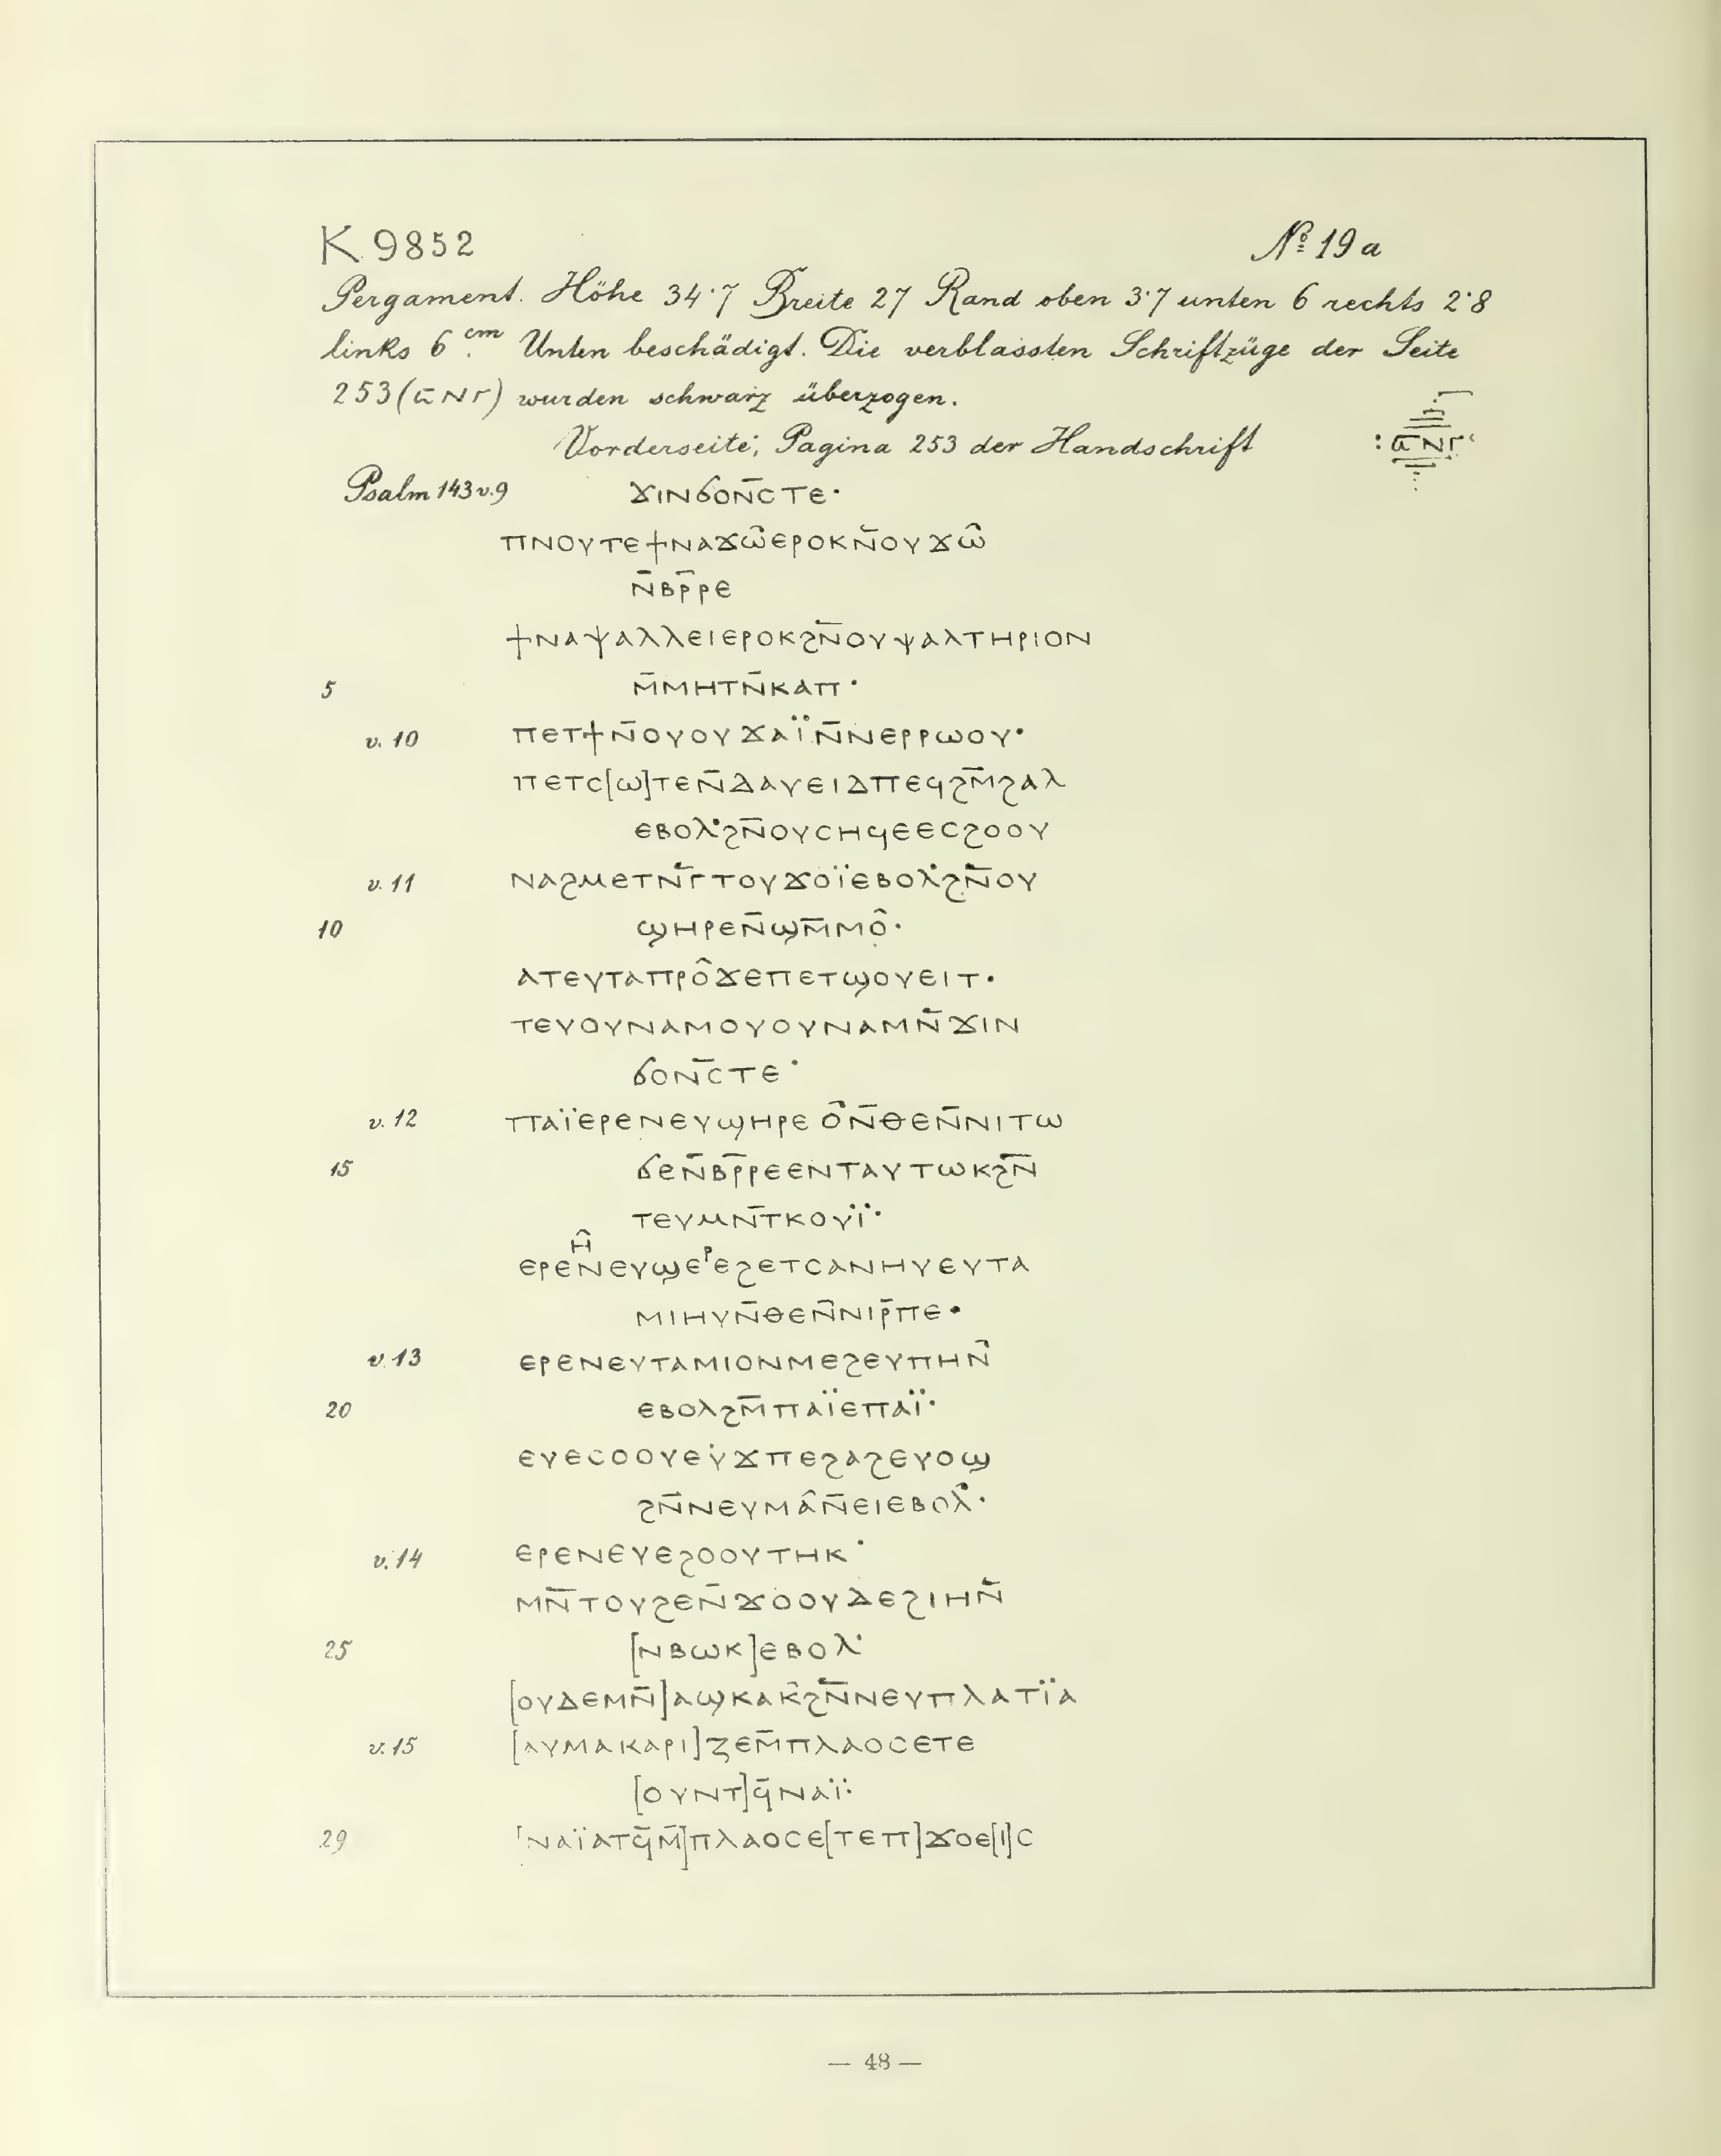 K 9852 № 19a
Pergament. Höhe 34·7 Breite 27 Rand oben 3·7 unten 6 rechts 2·8
links 6 cm. Unten beschädigt. Die verblassten Schriftzüge der Seite
253 (ⲥ̅ⲛⲅ) wurden schwarz überzogen.
Vorderseite; Pagina 253 der Handschrift :ⲥ̅ⲛⲅ:
Psalm 143 v. 9 ϫⲓⲛϭⲟⲛ̅ⲥⲧⲉ·
ⲡⲛⲟⲩⲧⲉϯⲛⲁϫⲱ̂ⲉⲣⲟⲕⲛ̅ⲟⲩϫⲱ̂
ⲛ̅ⲃⲣ̅ⲣⲉ
ϯⲛⲁⲯⲁⲗⲗⲉⲓⲉⲣⲟⲕϩⲛ̅ⲟⲩⲯⲁⲗⲧⲏⲣⲓⲟⲛ
5 ⲙ̅ⲙⲏⲧⲛ̅ⲕⲁⲡ·
v. 10 ⲡⲉⲧϯⲛ̅ⲟⲩⲟⲩϫⲁⲓ̈ⲛ̅ⲛⲉⲣⲣⲱⲟⲩ·
ⲡⲉⲧⲥ[ⲱ]ⲧⲉⲛ̅ⲇⲁⲩⲉⲓⲇⲡⲉϥϩⲙ̅ϩⲁⲗ
ⲉⲃⲟⲗ·ϩⲛ̅ⲟⲩⲥⲏϥⲉⲉⲥϩⲟⲟⲩ
v. 11 ⲛⲁϩⲙⲉⲧⲛ̅ⲅⲧⲟⲩϫⲟⲓ̈ⲉⲃⲟⲗ·ϩⲛ̅ⲟⲩ
10 ϣⲏⲣⲉⲛ̅ϣⲙ̅ⲙⲟ̂·
ⲁⲧⲉⲩⲧⲁⲡⲣⲟ̂ϫⲉⲡⲉⲧϣⲟⲩⲉⲓⲧ·
ⲧⲉⲩⲟⲩⲛⲁⲙⲟⲩⲟⲩⲛⲁⲙⲛ̅ϫⲓⲛ
ϭⲟⲛ̅ⲥⲧⲉ·
v. 12 ⲡⲁⲓ̈ⲉⲣⲉⲛⲉⲩϣⲏⲣⲉ ⲟ̂ⲛ̅ⲑⲉⲛ̅ⲛⲓⲧⲱ
15 ϭⲉⲛ̅ⲃⲣ̅ⲣⲉⲉⲛⲧⲁⲩⲧⲱⲕϩⲛ̅
ⲧⲉⲩⲙⲛ̅ⲧⲕⲟⲩⲓ̈·
ⲏ̂
ⲉⲣⲉⲛⲉⲩϣⲉⲣⲉϩⲉⲧⲥⲁⲛⲏⲩⲉⲩⲧⲁ
ⲙⲓⲏⲩⲛ̅ⲑⲉⲛ̅ⲛⲓⲣ̅ⲡⲉ·
v. 13 ⲉⲣⲉⲛⲉⲩⲧⲁⲙⲓⲟⲛⲙⲉϩⲉⲩⲡⲏⲛ̂
20 ⲉⲃⲟⲗϩⲙ̅ⲡⲁⲓ̈ⲉⲡⲁⲓ̈·
ⲉⲩⲉⲥⲟⲟⲩⲉⲩ̇ϫⲡⲉϩⲁϩⲉⲩⲟϣ
ϩⲛ̅ⲛⲉⲩⲙⲁ̂ⲛ̅ⲉⲓⲉⲃⲟⲗ̂·
v. 14 ⲉⲣⲉⲛⲉⲩⲉϩⲟⲟⲩⲧⲏⲕ·
ⲙⲛ̅ⲧⲟⲩϩⲉⲛ̅ϫⲟⲟⲩⲇⲉϩⲓⲏⲛ̅
25 [ⲛⲃⲱⲕ]ⲉⲃⲟⲗ·
[ⲟⲩⲇⲉⲙⲛ̅]ⲁϣⲕⲁⲕ̂ϩⲛ̅ⲛⲉⲩⲡⲗⲁⲧⲓ̈ⲁ
v. 15 [ⲁⲩⲙⲁⲕⲁⲣⲓ]ⲍⲉⲙ̅ⲡⲗⲁⲟⲥⲉⲧⲉ
[ⲟⲩⲛⲧ]ϥ̅ⲛⲁⲓ̈:
29 [ⲛⲁⲓ̈ⲁⲧϥ̅ⲙ̅]ⲡⲗⲁⲟⲥⲉ[ⲧⲉⲡ]ϫⲟⲉ[ⲓ]ⲥ
— 48 —